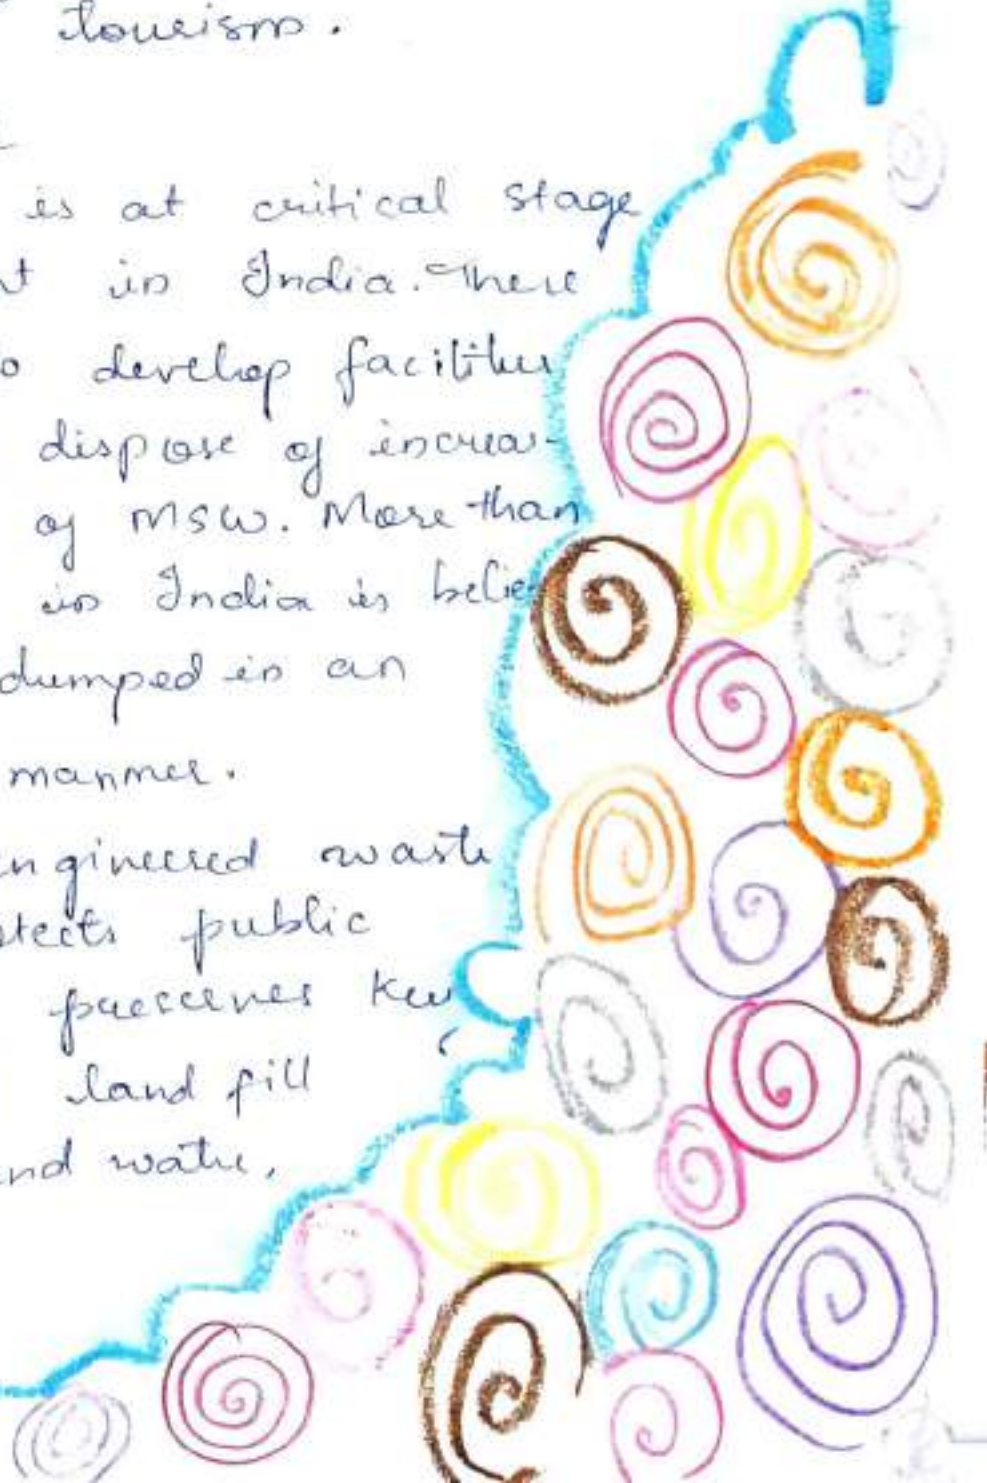 tourism.
is at critical stage
in India. There
develop facilities
dispose of increas-
of MSW. More than
in India is belie
dumped in an
manner.
ngineered waste
tects public
preserves
land fill
nd water.